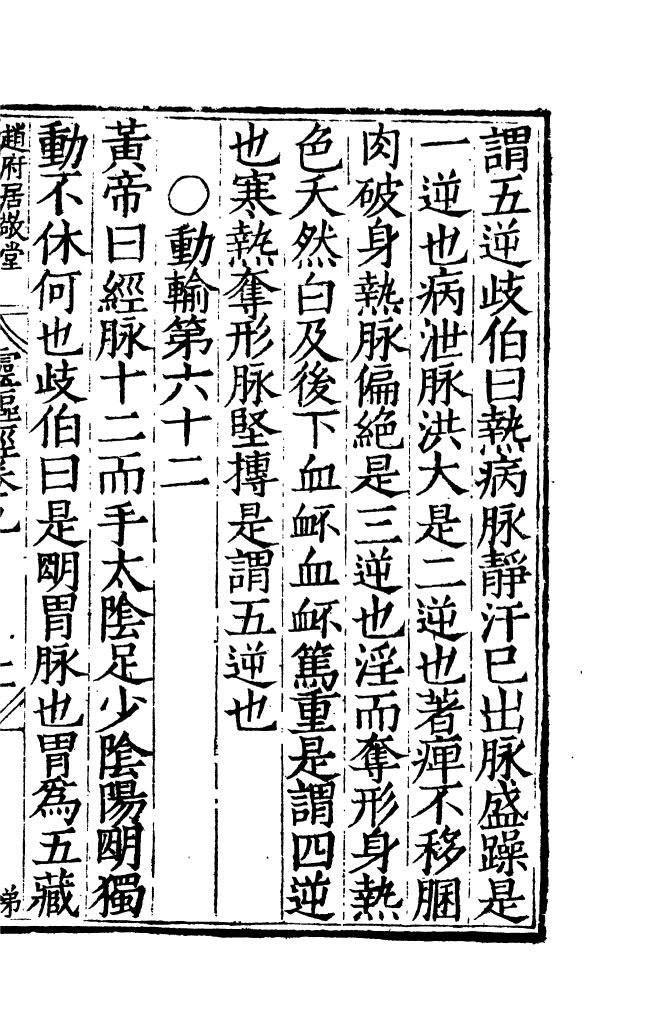 謂五逆歧伯曰熱病脉靜汗巳出脉盛躁是
一逆也病泄脉洪大是二逆也著痺不移䐃
肉破身熱脉偏絕是三逆也淫而奪形身熱
色夭然白及後下血衃血衃篤重是謂四逆
也寒熱奪形脉堅摶是謂五逆也
○動輸第六十二
黃帝曰經脉十二而手太陰足少陰陽明獨
動不休何也歧伯曰是明胃脉也胃爲五藏
趙府居敬堂
靈樞經卷九